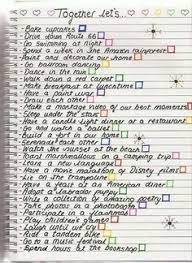 Together let's...
- Bake cupcakes
- Drive down Route 66
- Go swimming at night
- Spend a week in the Amazon rainforest
- Paint and decorate our home
- Go ballroom dancing
- Dance in the rain
- Walk down a red carpet
- Make breakfast at lunchtime
- Have a paint war
- Draw each other
- Make a montage video of our best moments
- Sleep under the stars
- Have a candle light dinner at a restaurant
- Go and watch a ballet
- Build a fort in our home
- Serenade each other
- Watch the sunset at the beach
- Toast marshmallows on a camping trip
- Learn a new language
- Have a movie marathon of Disney films
- Lie on the trampoline
- Have a at an American diner
- Adopt a labrador puppy
- Write a collection of amazing poetry
- Take photos in a photobooth
- Participate in a flashmob
- Play children's games
- Laugh until we cry
- Ride a tandem bike
- Go to a music festival
- Spend hours at the bookshop